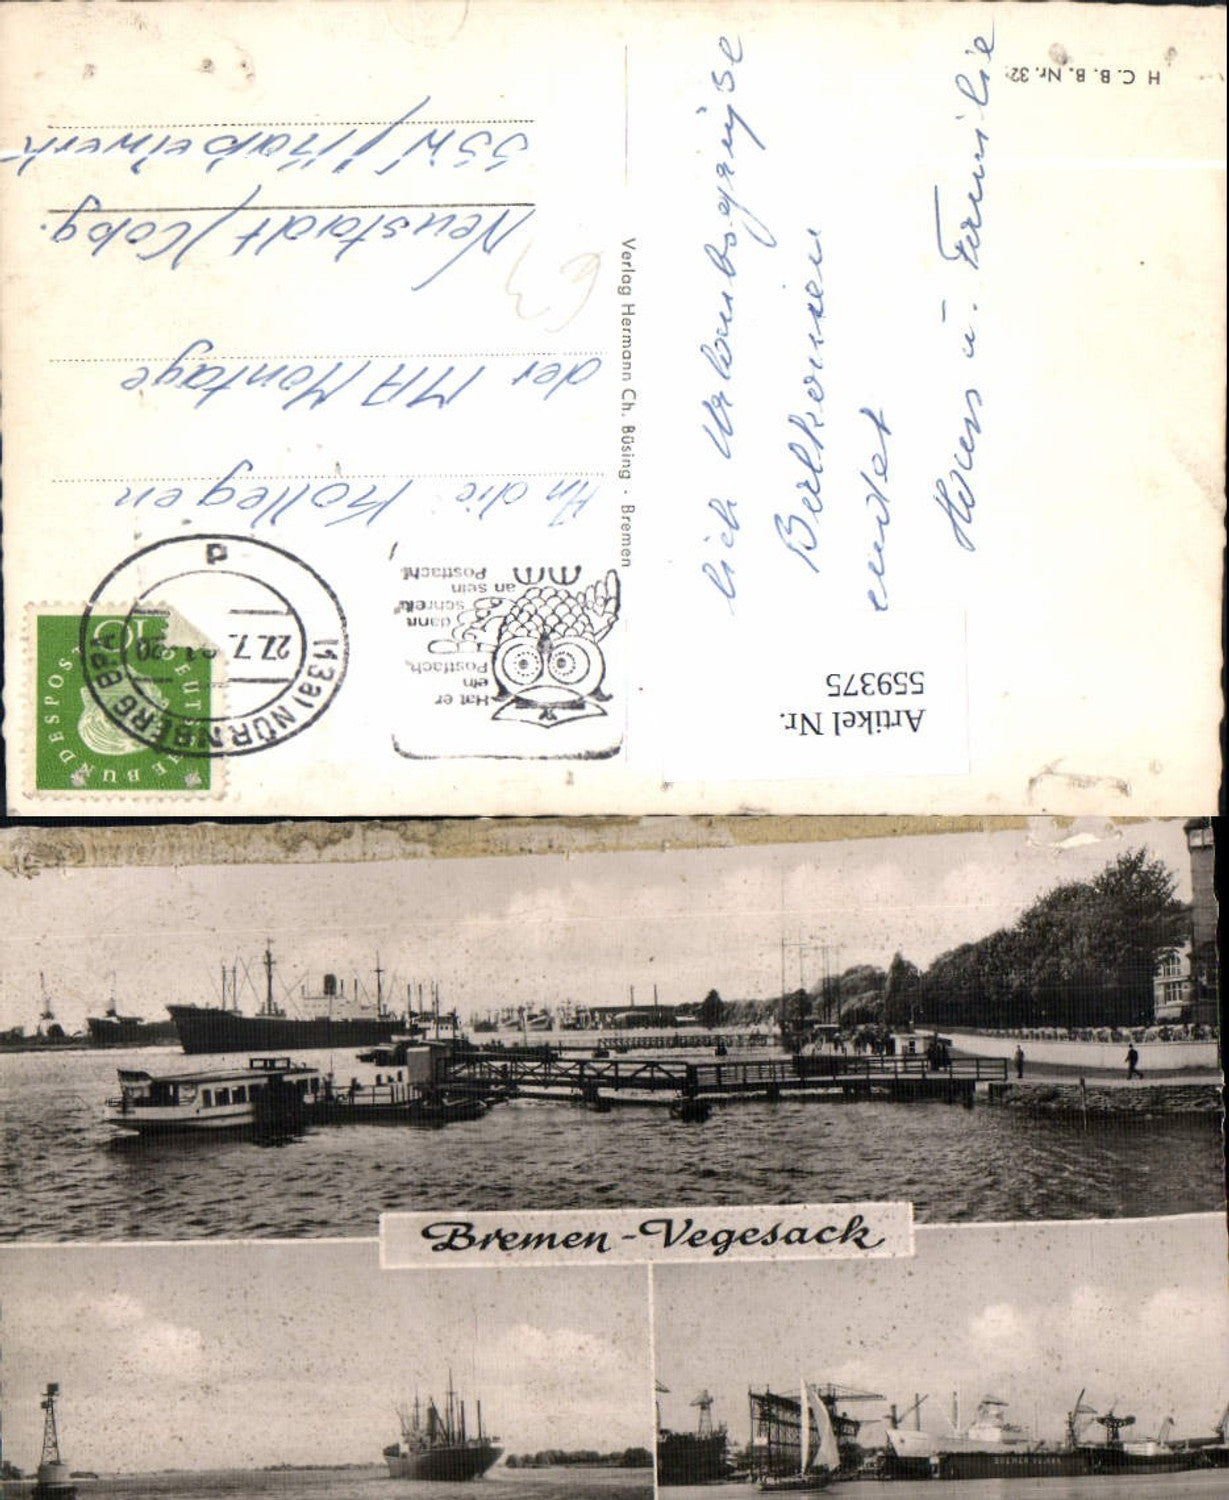 H C. B. B. Nr. 32
Verlag Hermann Ch. Büsing · Bremen
DEUTSCHE BUNDESPOST
10
(13a) NÜRNBERG BPA
27.7.
-20
P
Hat er
ein
Postfach,
dann
schreib'
an sein
Postfach!
An die Kollegen
der MA Montage
Neustadt/Cobg.
SSW/Kabelwerk
lich Urlaubsgrüße
sendet
Hans u. Familie
Artikel Nr.
559375
Bremen-Vegesack
BREMER VULKAN